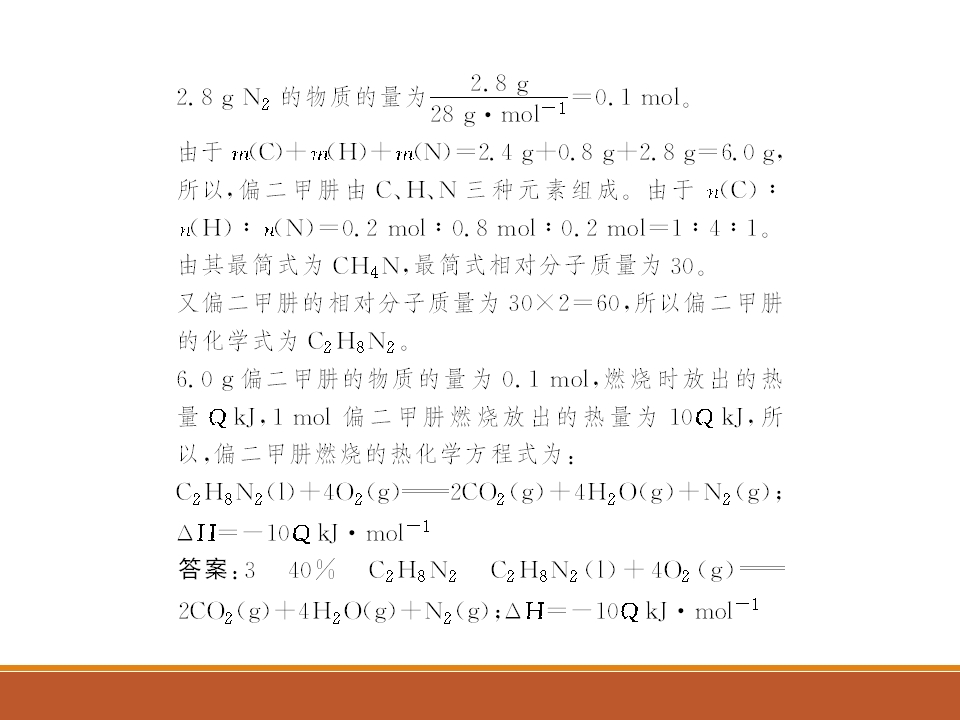 2.8 g N₂ 的物质的量为 2.8 g / 28 g·mol⁻¹ =0.1 mol。
由于 m(C)+m(H)+m(N)=2.4 g+0.8 g+2.8 g=6.0 g,
所以,偏二甲肼由 C、H、N 三种元素组成。由于 n(C)∶
n(H)∶n(N)=0.2 mol∶0.8 mol∶0.2 mol=1∶4∶1。
由其最简式为 CH₄N,最简式相对分子质量为 30。
又偏二甲肼的相对分子质量为 30×2=60,所以偏二甲肼
的化学式为 C₂H₈N₂。
6.0 g 偏二甲肼的物质的量为 0.1 mol,燃烧时放出的热
量 Q kJ,1 mol 偏二甲肼燃烧放出的热量为 10Q kJ,所
以,偏二甲肼燃烧的热化学方程式为:
C₂H₈N₂(l)+4O₂(g)══2CO₂(g)+4H₂O(g)+N₂(g);
ΔH=-10Q kJ·mol⁻¹
答案:3 40% C₂H₈N₂ C₂H₈N₂(l)+4O₂(g)══
2CO₂(g)+4H₂O(g)+N₂(g);ΔH=-10Q kJ·mol⁻¹